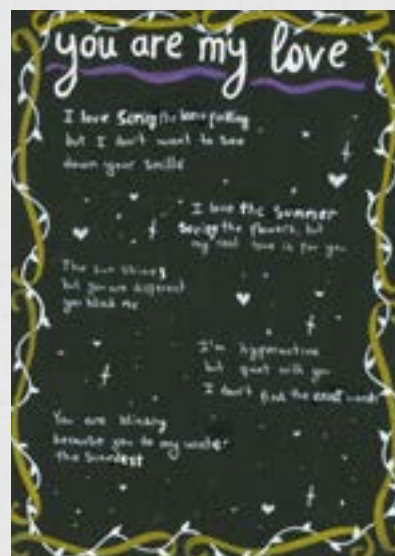 you are my love
I love seeing the leave falling
but I don't want to see
down your smille
I love the summer
seeing the flowers, but
my real love is for you
The sun shines
but you are different
you blind me
I'm hyperactive
but quiet with you
I don't find the exact words
You are blinding
because you do my winter
the sunndest